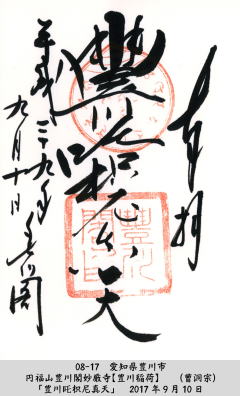 奉拝
豊川吒枳尼真天
平成二十九年
九月十日
豊川閣
08-17　愛知県豊川市
円福山豊川閣妙厳寺【豊川稲荷】　（曹洞宗）
「豊川吒枳尼真天」　2017年9月10日